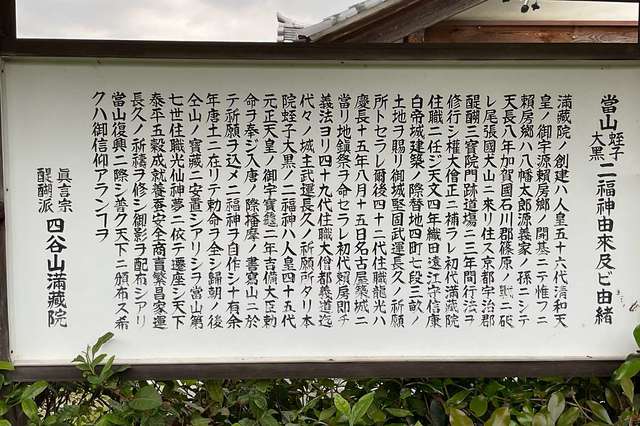 當山 蛭子 大黒 二福神由來及ビ由緒
滿藏院ノ創建ハ人皇五十六代清和天
皇ノ御宇源賴房郷ノ開基ニテ惟フニ
賴房郷ハ八幡太郎源義家ノ孫ニシテ
天長八年加賀國石川郡篠原ノ戰ニ破
レ尾張國犬山ニ來リ住ス京都宇治郡
醍醐三寶院門跡道場ニ三年間行法ヲ
修行シ權大僧正ニ補ラレ初代滿藏院
住職ニ任ジ天文四年織田遠江守信康
白帝城建築ノ際替地四町七段三畝ノ
土地ヲ賜リ御城堅固武運長久ノ祈願
所トセラレ爾後四十二代住職龍光ハ
慶長十五年八月十五日名古屋築城ニ
當リ地鎮祭ヲ命セラレ初代賴房即チ
義法ヨリ四十九代住職大僧都義道迄
代々ノ城主武運長久ノ祈願所タリ本
院蛭子大黒ノ二福神ハ人皇四十五代
元正天皇ノ御宇寶龜二年吉備大臣勅
命ヲ奉ジ入唐ノ際播摩ノ書寫山ニ於
テ祈願ヲ込メ二福神ヲ自作シ十有余
年唐土ニ在リテ勅命ヲ全シ歸朝ノ後
仝山ノ寶藏ニ安置シアリシヲ當山第
七世住職光仙神夢ニ依テ遷座シ天下
泰平五穀成就養蚕安全商賣繁昌家運
長久ノ祈禱ヲ修シ御影ヲ配布シアリ
當山復興ニ際シ普ク天下ニ頒布ス希
クハ御信仰アランヿヲ
眞言宗
醍醐派
四谷山滿藏院